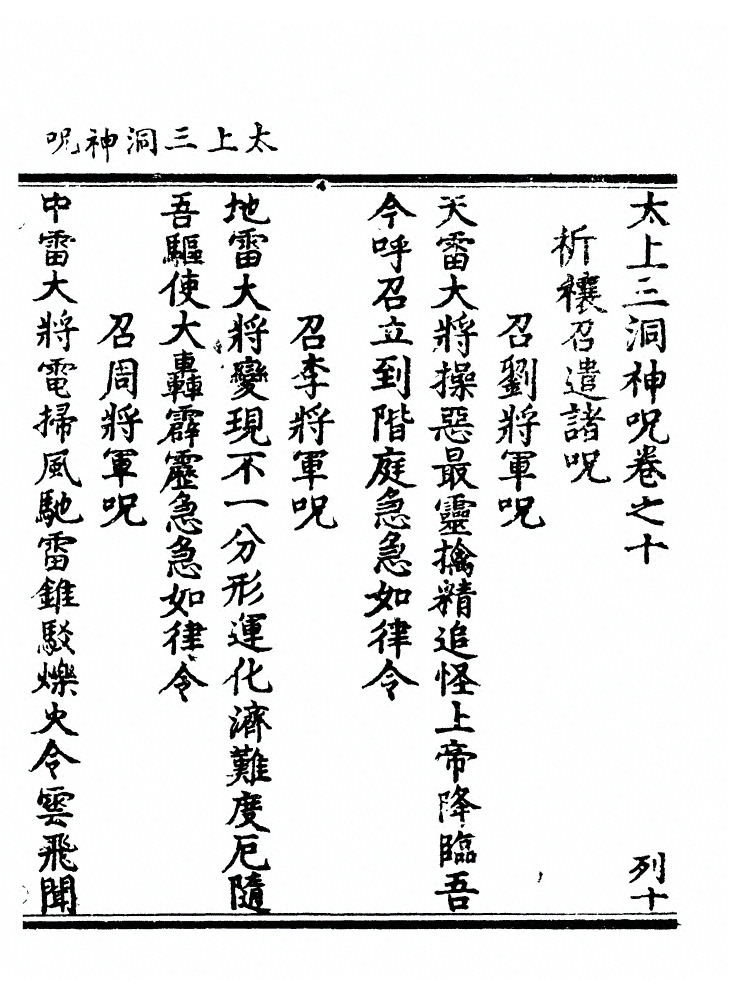 太上三洞神呪
太上三洞神呪卷之十 列十
祈禳召遣諸呪
召劉將軍呪
天雷大將操惡最靈擒精追怪上帝降臨吾
今呼召立到階庭急急如律令
召李將軍呪
地雷大將變現不一分形運化濟難度厄隨
吾驅使大轟霹靂急急如律令
召周將軍呪
中雷大將電掃風馳雷錐駁爍火令雲飛聞